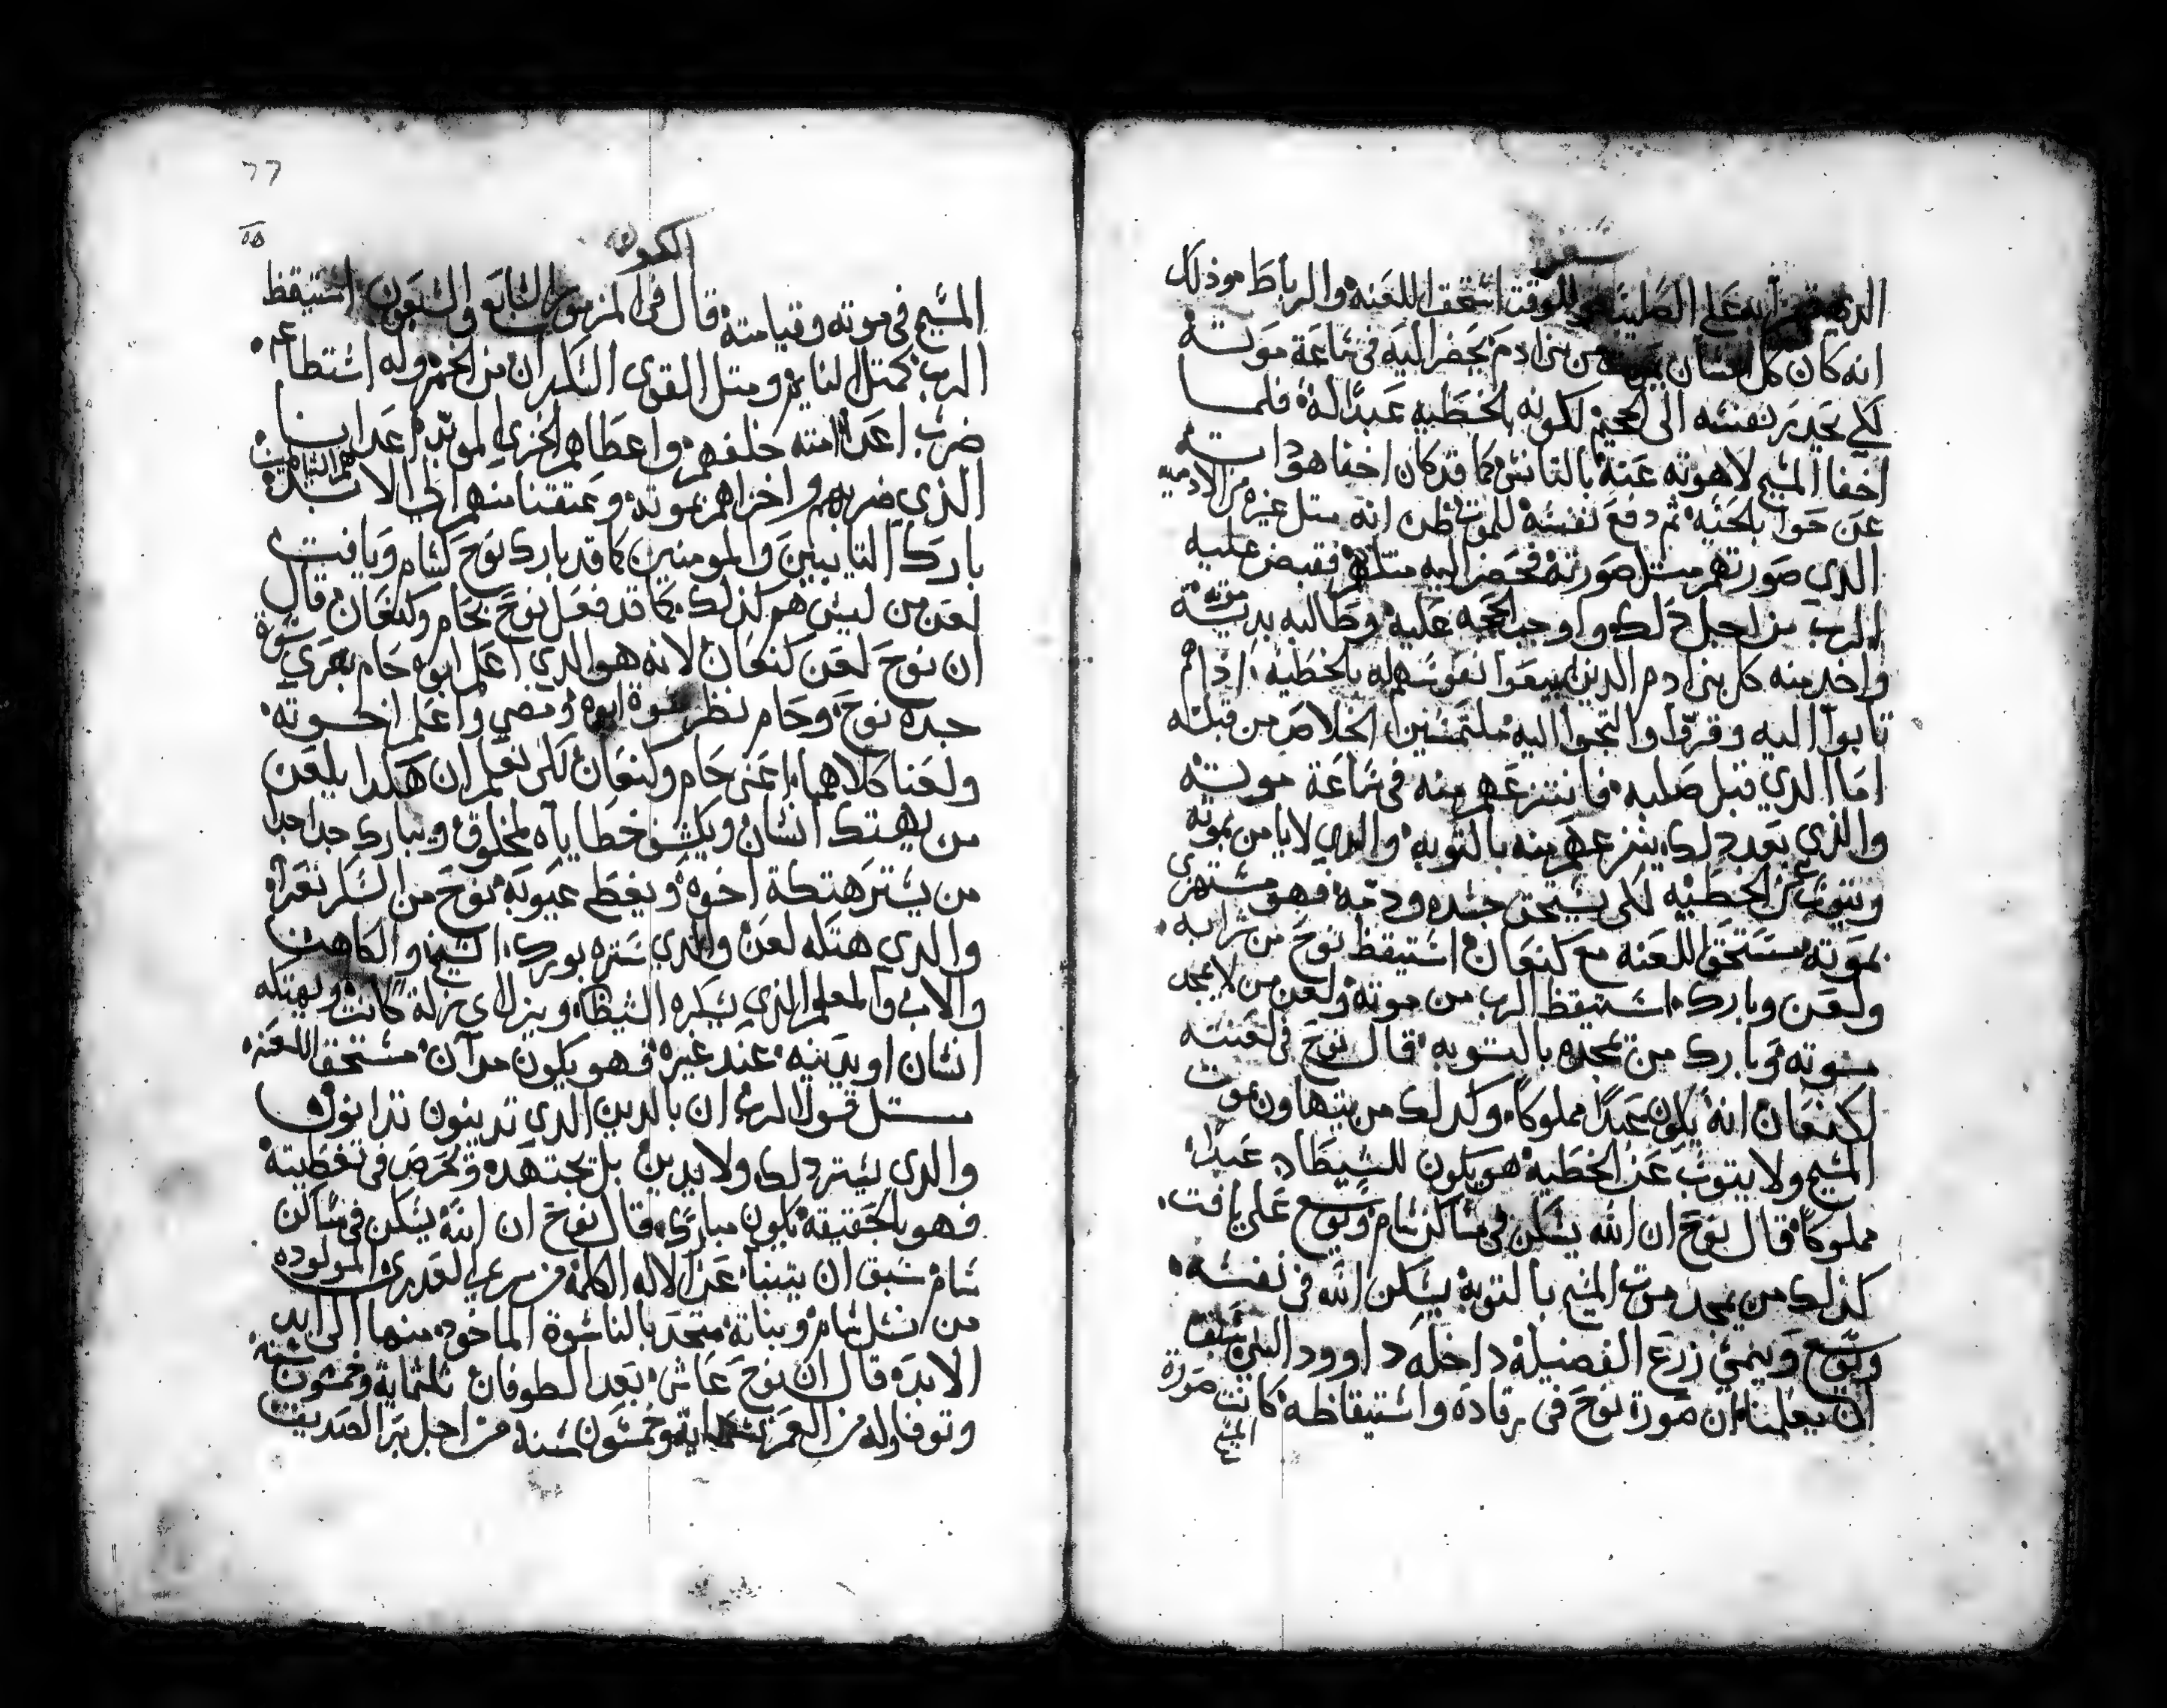 سفر
الدي على الصليب للوقت استحق اللعنه والرباط موذلك
انه كان كل انسان يموت من بني ادم يحضر اليه في ساعة موته
لكي يحدر نفسه الى الجحيم لكونه بالخطيه عبدًا له فلما
اخفا المسيح لاهوته عنه بالتانس كما قد كان اخفا هو داته
عن حوا بالحيه ثم دفع نفسه للموت ظن انه متل غيره من الادميه
الدي صورتهم متل صورته فحضر اليه متلهم فقبض عليه
الرب من اجل ذلك واوجب الحجه عليه وطالبه بدية موته
واخد منه كل بني ادم الدين بيعوا نفوسهم له بالخطيه ادا هم
تابوا اليه وقروا والتجوا اليه ملتمسين الخلاص من قبله
اما الدي قبل صلبه فانتزعهم منه في ساعة موته
والذي بعد دلك ينتزعهم منه بالتوبه والدي لا يامن بموته
ويتوب عن الخطيه لكي يستحق جسده ودمه فهو مستهزي
بموته مستحق اللعنه مع كنعان استيقظ نوح من شرابه
ولعن وبارك استيقظ الرب من موته ولعن من لا يمجد
موته وبارك من يمجده بالتوبه قال نوح في لعنته
لكنعان انه يكون عبدًا مملوكًا وكدلك من يتهاون بموت
المسيح ولا يتوب عن الخطيه هو يكون للشيطان عبدًا
مملوكًا قال نوح ان الله يسكن في مساكن سام ويوسع على يافت
كذلك من يمجد موت المسيح بالتوبه يسكن الله في نفسه
ويوسع وينمي زرع الفضيله داخله داوود النبي سبق
ان يعلمنا ان صورة نوح في رقاده واستيقاظه كانت صورة
المسيح
٦٦
التكوين
المسيح في موته وقيامته قال في المزمور السابع والسبعون استيقظ
الرب كمتل النايم ومتل القوي السكران من الخمر وله استطاعه
ضرب اعداءته خلفهم واعطاهم الخزي الموبد اعداينا هم الشياطين
الذي ضربهم واخزاهم بموته وعتقنا منهم الى الابد
بارك التايبين والمومنين كما قد بارك نوح لسام ويافت
لعن من ليس هو كذلك كما قد فعل نوح بحام وكنعان قال
ان نوح لعن كنعان لانه هو الدي اعلم ابوه حام بعري سوة
جده نوح وحام نظر سوة ابوه ومضي واعلم اخوته
ولعنا كلاهما اعني حام وكنعان لكي نعلم ان هكدا يلعن
من يهتك انسان ويكشف خطاياه لمخلوق ويبارك جدا جدا
من يستر هتكة اخوه ويغطي عيوبه نوح من السكر تعرا
والدي هتكه لعن والدي ستره بورك الشيخ والكاهن
والاب والمعلم الذي يسكره الشيطان وينزل اي زلة كانت ويهتكه
انسان او يدينه عند غيره فهو يكون مدان مستحق اللعنه
متل قول الرب ان بالدين الدي تدينون تدانون
والدي يستر دلك ولا يدين بل يجتهد ويحرص في تغطيته
فهو بالحقيقه يكون مباركًا قال نوح ان الله يسكن في مساكن
سام سبق ان يتنبا عن الاله الكلمة من مريم العدري المولوده
من نسل سام وبناته متحد بالناسوة الماخود منها الى ابد
الابد قال ان نوح عاش بعد الطوفان تلتماية وخمسون سنه
وتوفا وله من العمر تسعماية وخمسون سنه من اجل بر الصديق